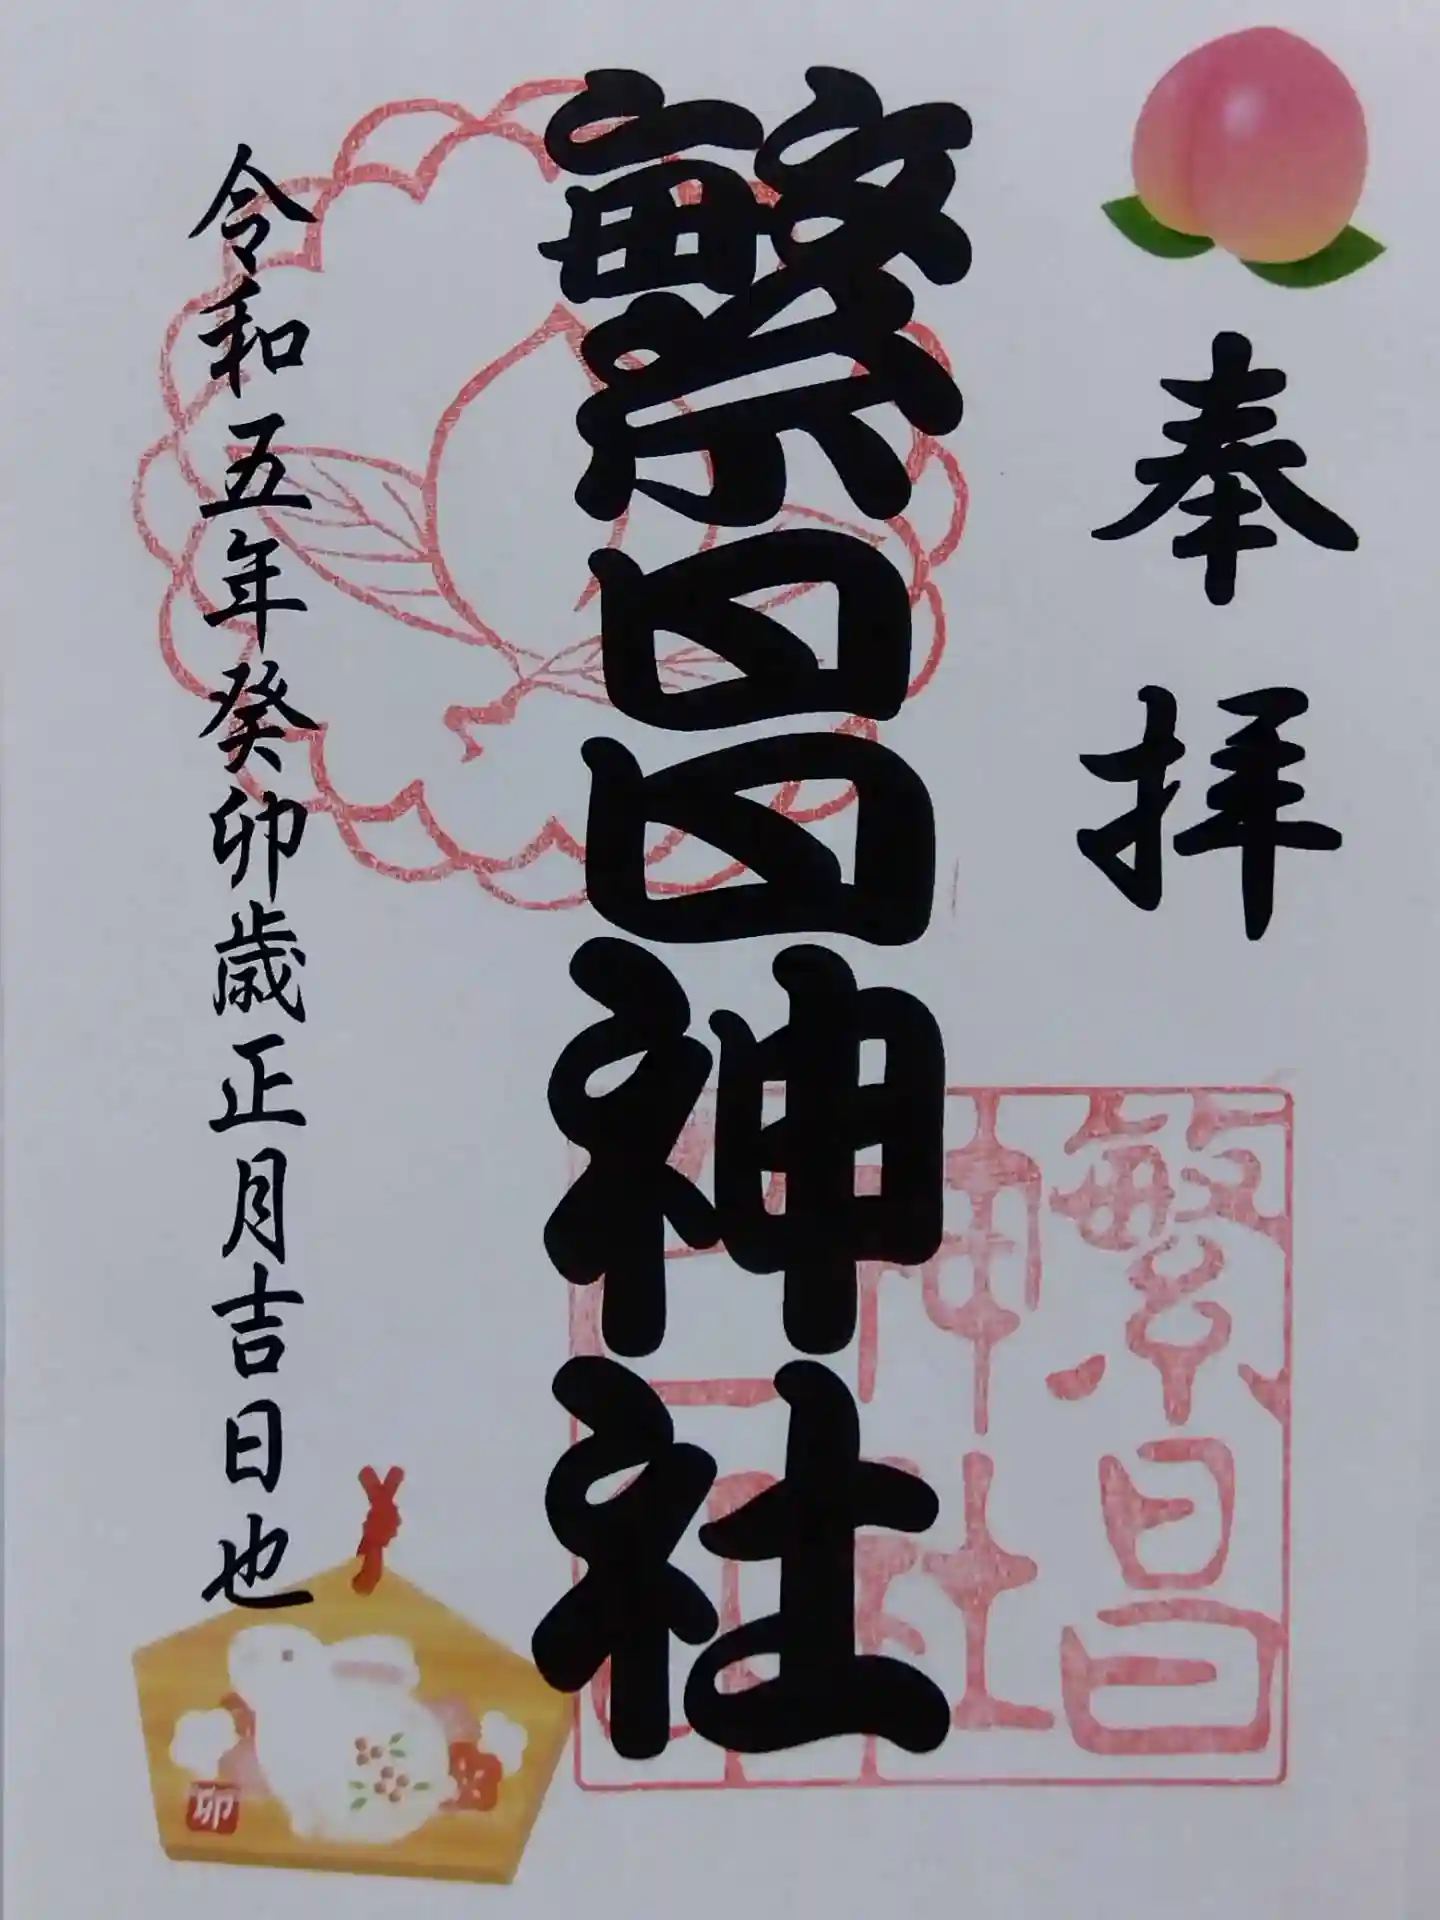 奉拝
繁昌神社
繁昌
神社
令和五年癸卯歳正月吉日也
卯